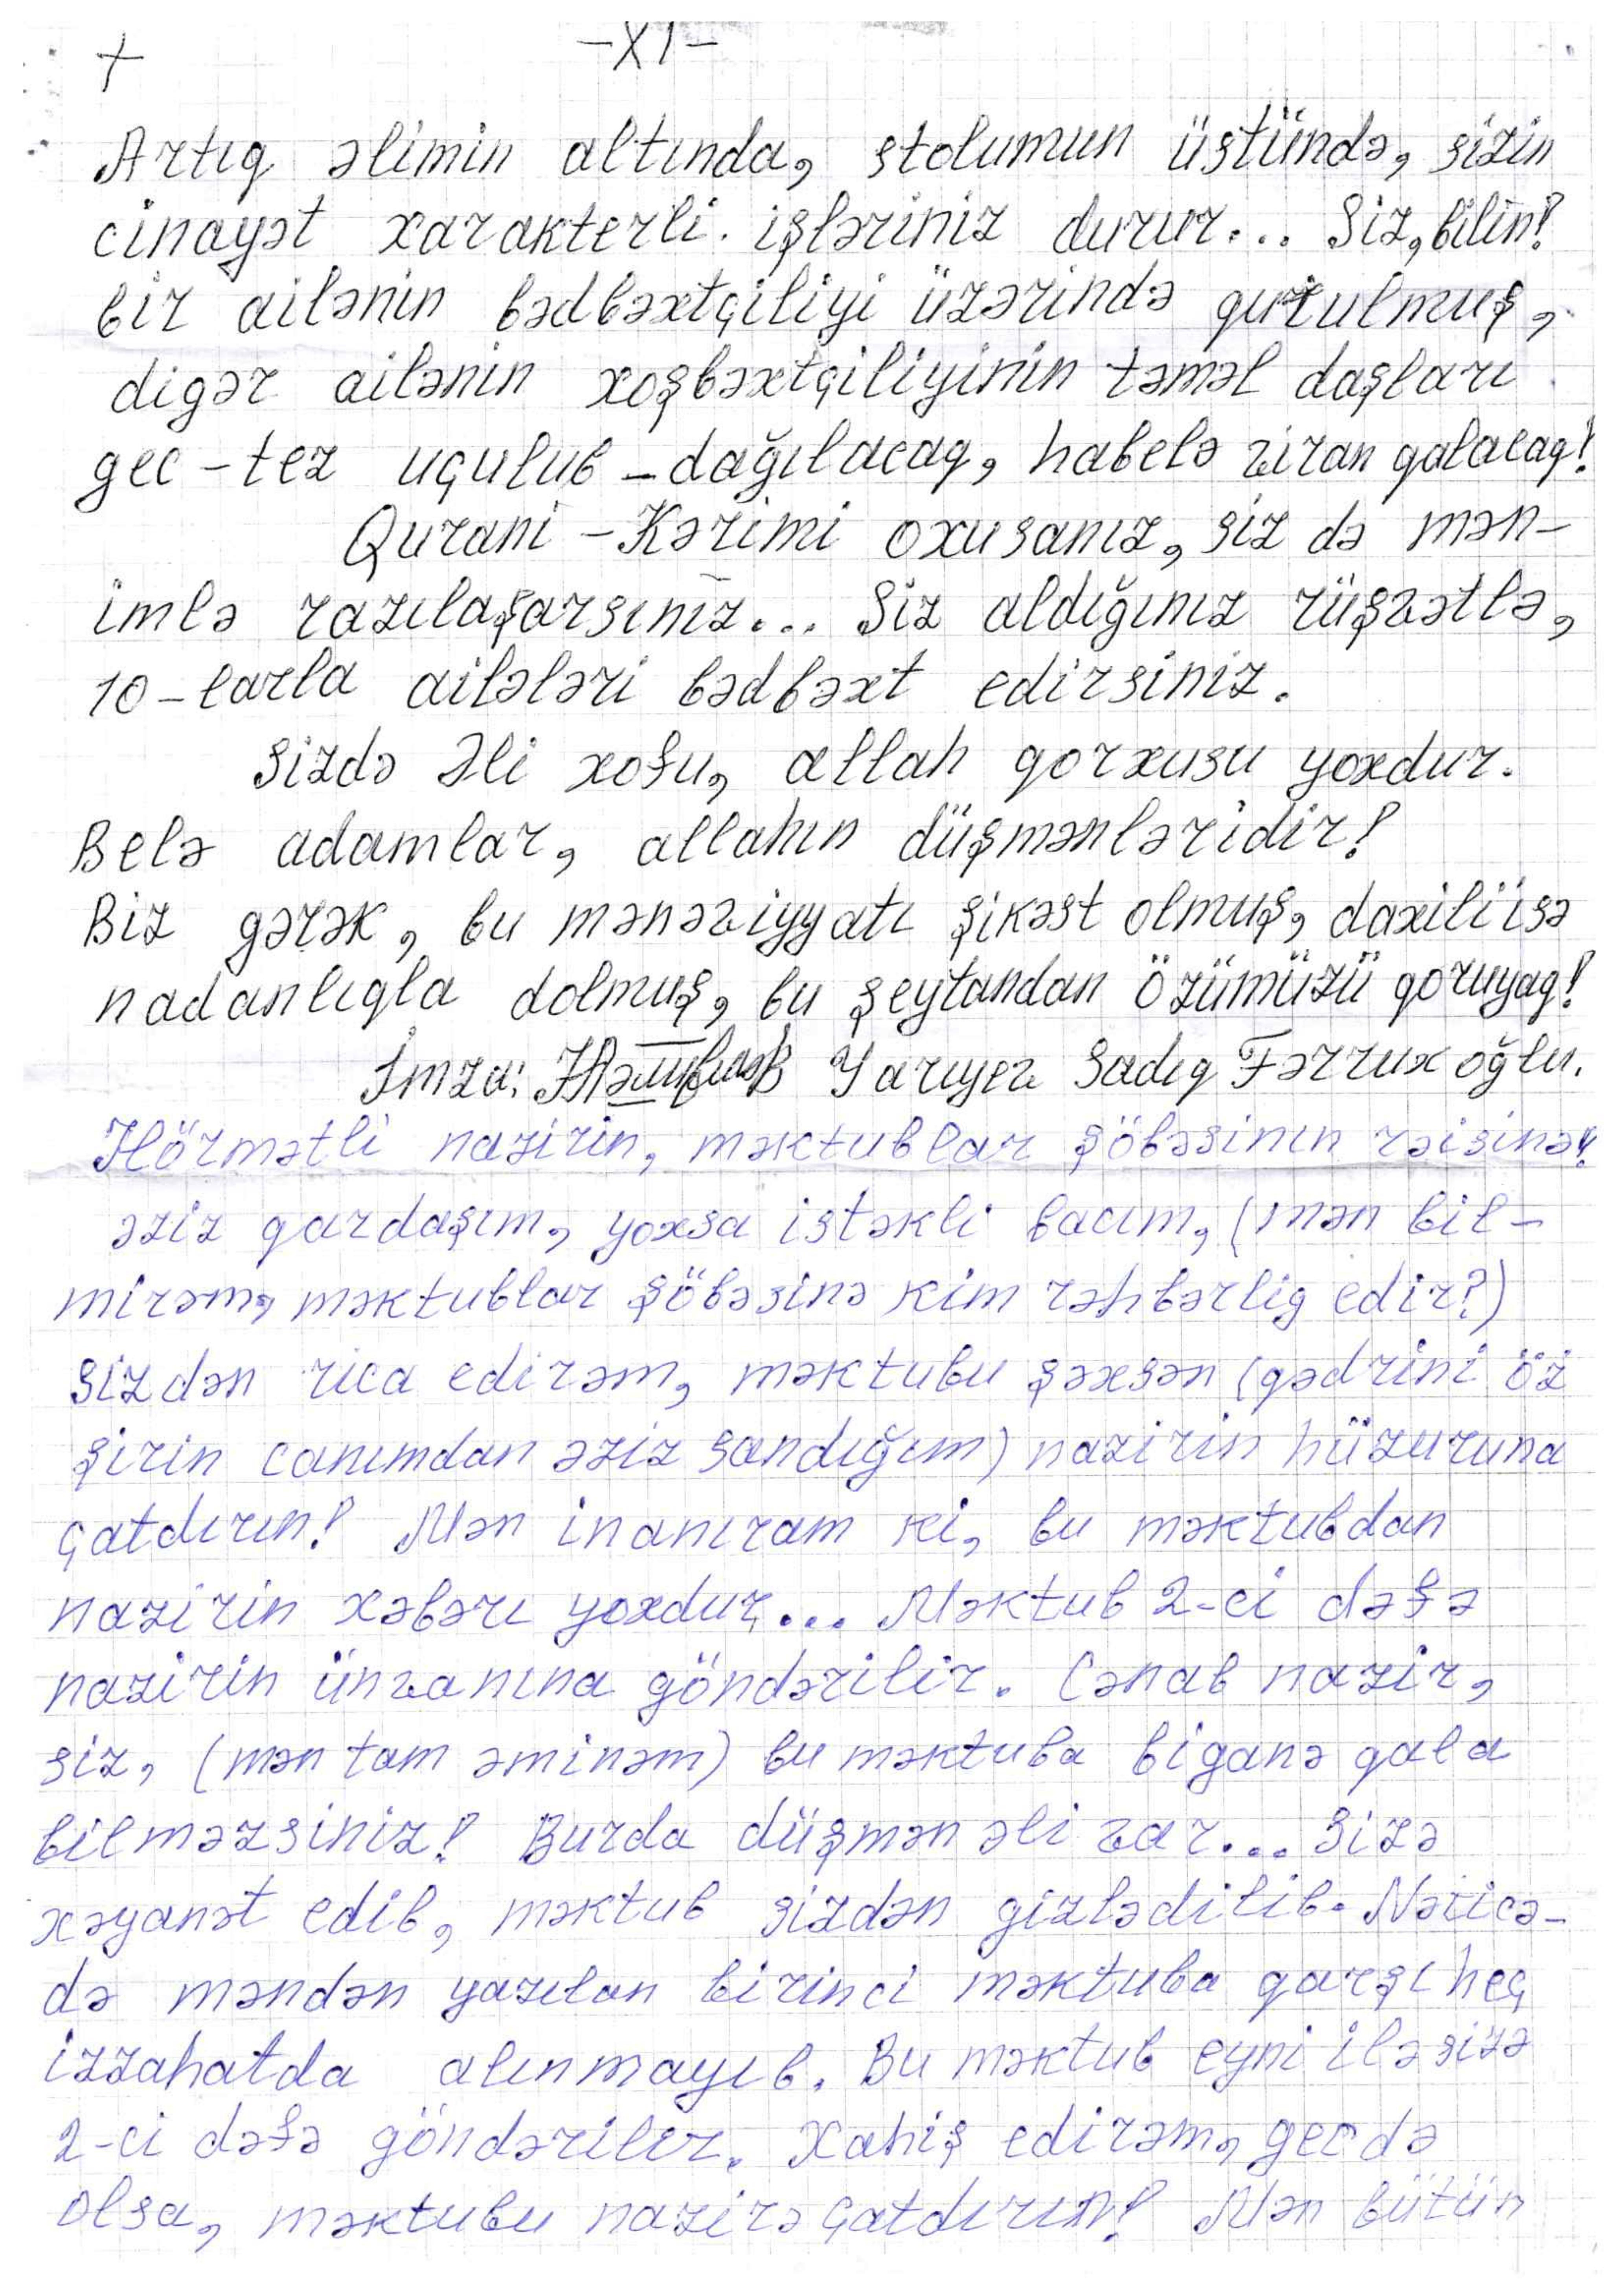 -XI-
Artıq əlimin altında, stolumun üstündə, sizin
cinayət xarakterli işləriniz durur... Siz, bilin!
bir ailənin bədbəxtçiliyi üzərində qurulmuş,
digər ailənin xoşbəxtçiliyinin təməl daşları
gec-tez uçulub-dağılacaq, habelə viran qalacaq!
Qurani-Kərimi oxusanız, siz də mən-
imlə razılaşarsınız... Siz aldığınız rüşvətlə,
10-larla ailələri bədbəxt edirsiniz.
Sizdə Əli xofu, allah qorxusu yoxdur.
Belə adamlar, allahın düşmənləridir!
Biz gərək, bu mənəviyyatı şikəst olmuş, daxili isə
nadanlıqla dolmuş, bu şeytandan özümüzü qoruyaq!
İmza: Yarıyev Sadıq Fərrux oğlu.
Hörmətli nazirin, məktublar şöbəsinin rəisinə!
əziz qardaşım, yoxsa istəkli bacım, (mən bil-
mirəm, məktublar şöbəsinə kim rəhbərlig edir?)
Sizdən rica edirəm, məktubu şəxsən (qədrini öz
şirin canımdan əziz sandığım) nazirin hüzuruna
çatdırın! Mən inanıram ki, bu məktubdan
nazirin xəbərı yoxdur... Məktub 2-ci dəfə
nazirin ünvanına göndərilir. Cənab nazir,
siz, (mən tam əminəm) bu məktuba biganə qala
bilməzsiniz! Burda düşmən əli var... Sizə
xəyanət edib, məktub sizdən gizlədilib. Nəticə-
də məndən yazılan birinci məktuba qarşı heç
izzahatda alınmayıb. Bu məktub eyni ilə sizə
2-ci dəfə göndərilir. Xahiş edirəm, gec də
olsa, məktubu nazirə çatdırın! Mən bütün